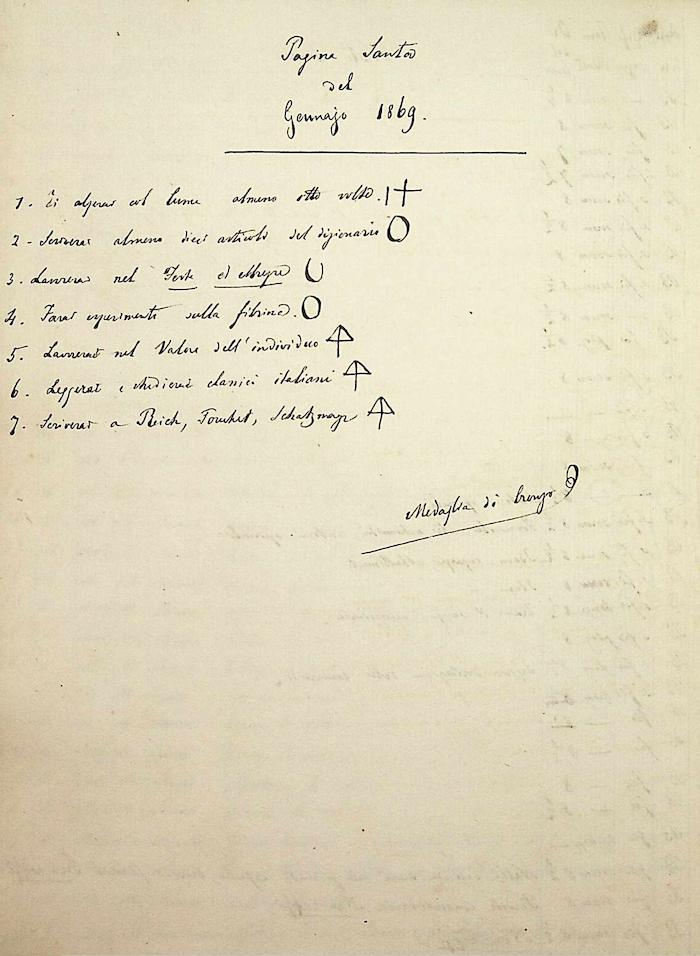 Pagina Santa
del
Gennajo 1869.
1. Ti alzerai col lume almeno otto volte.
2. Scriverai almeno dieci articoli del dizionario
3. Lavorerai nel
4. Farai esperimenti sulla fibrina.
5. Lavorerai nel Valore dell'individuo
6. Leggerai e studierai classici italiani
7. Scriverai a Reich, Pouchet, Schatzmayr
Medaglia di bronzo